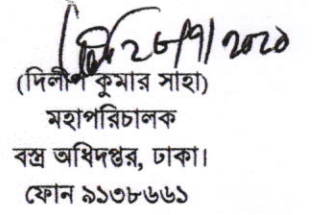 ২৮/৭/২০২০
(দিলীপ কুমার সাহা)
মহাপরিচালক
বস্ত্র অধিদপ্তর, ঢাকা।
ফোন ৯১৩৮৬৬১